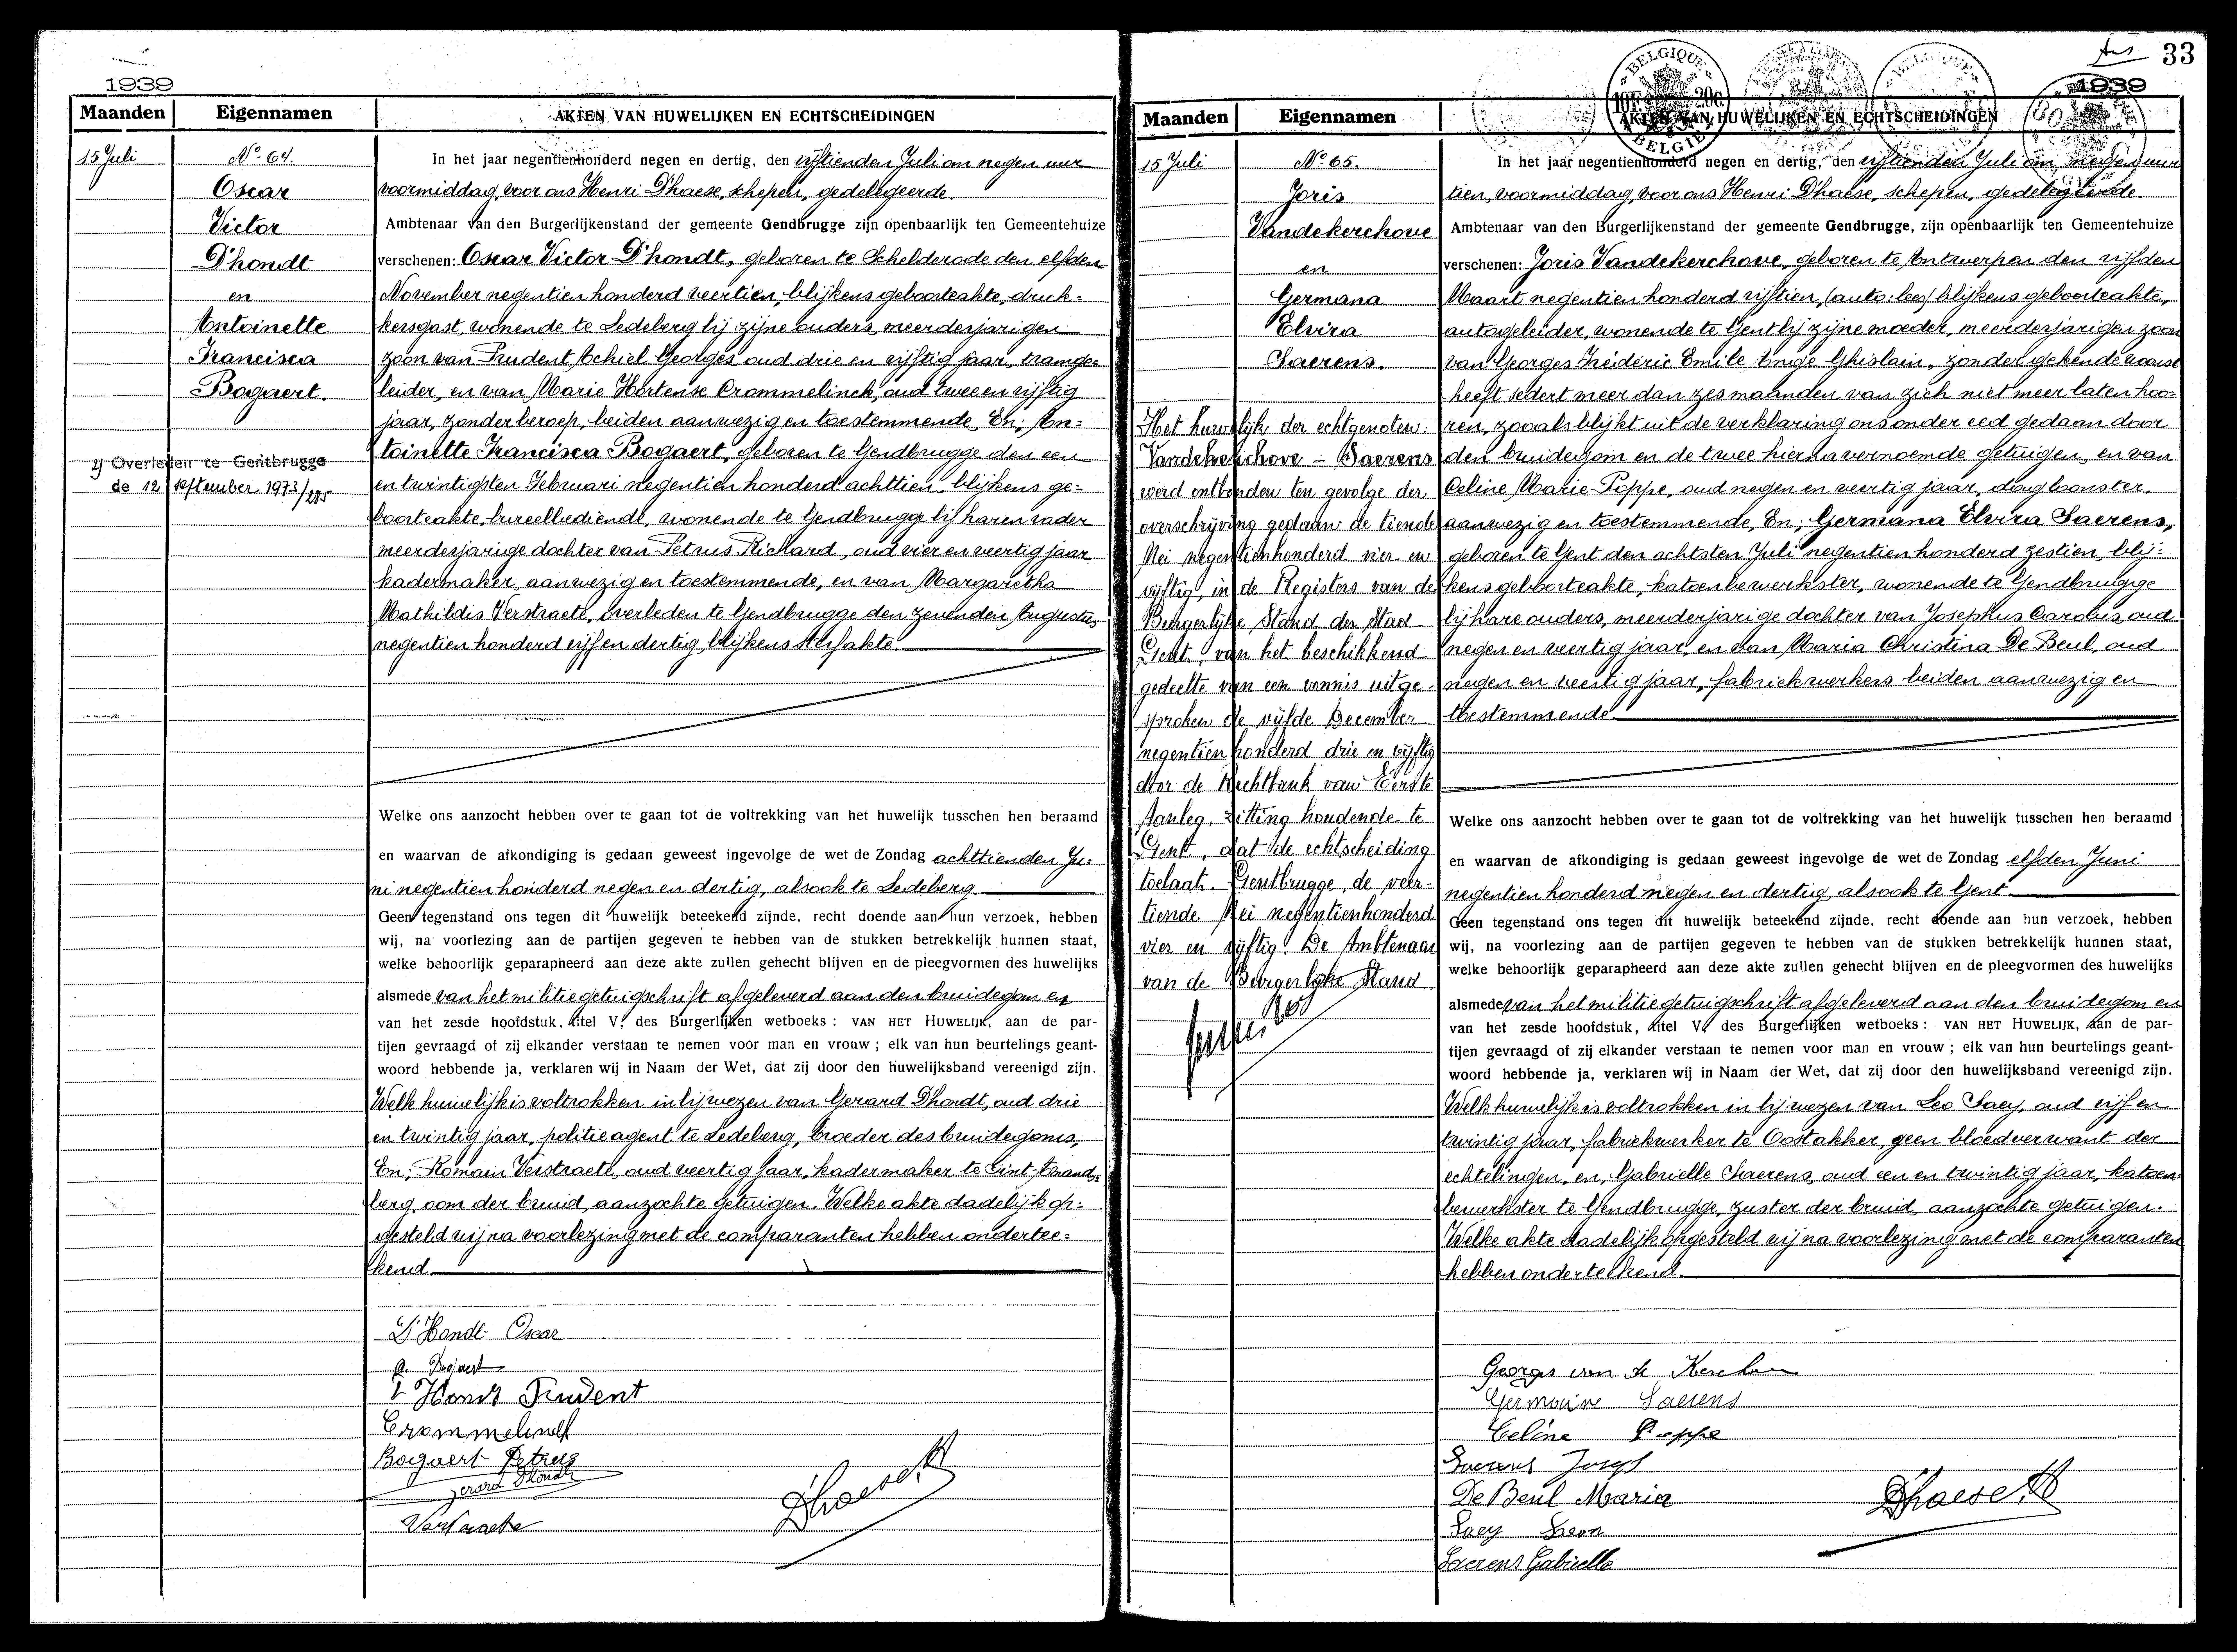 1939
Maanden Eigennamen AKTEN VAN HUWELIJKEN EN ECHTSCHEIDINGEN
15 Juli
No. 64.
Oscar
Victor
D'hondt
en
Antoinette
Francisca
Bogaert.
Overleden te Gentbrugge
de 12 september 1973/
In het jaar negentienhonderd negen en dertig, den vijftienden Juli om negen uur
voormiddag, voor ons Henri D'haese, schepen, gedelegeerde.
Ambtenaar van den Burgerlijkenstand der gemeente Gendbrugge zijn openbaarlijk ten Gemeentehuize
verschenen: Oscar Victor D'hondt, geboren te Schelderode den elfden
November negentien honderd veertien, blijkens geboorteakte, druk=
kersgast, wonende te Ledeberg bij zijne ouders, meerderjarigen
zoon van Prudent Achiel Georges, oud drie en vijftig jaar, tramge=
leider, en van Marie Hortense Crommelinck, oud twee en vijftig
jaar, zonder beroep, beiden aanwezig en toestemmende, En; An=
toinette Francisca Bogaert, geboren te Gendbrugge den een
en twintigsten Februari negentien honderd achttien, blijkens ge=
boorteakte, bureelbediende, wonende te Gendbrugge bij haren vader
meerderjarige dochter van Petrus Richard, oud vier en veertig jaar
kadermaker, aanwezig en toestemmende, en van Margaretha
Mathildis Verstraete, overleden te Gendbrugge den zevenden Augustus
negentien honderd vijf en dertig, blijkens sterfakte.
Welke ons aanzocht hebben over te gaan tot de voltrekking van het huwelijk tusschen hen beraamd
en waarvan de afkondiging is gedaan geweest ingevolge de wet de Zondag achttienden Ju=
ni negentien honderd negen en dertig, alsook te Ledeberg.
Geen tegenstand ons tegen dit huwelijk beteekend zijnde, recht doende aan hun verzoek, hebben
wij, na voorlezing aan de partijen gegeven te hebben van de stukken betrekkelijk hunnen staat,
welke behoorlijk geparapheerd aan deze akte zullen gehecht blijven en de pleegvormen des huwelijks
alsmede van het militiegetuigschrift afgeleverd aan den bruidegom en
van het zesde hoofdstuk, titel V, des Burgerlijken wetboeks : VAN HET HUWELIJK, aan de par-
tijen gevraagd of zij elkander verstaan te nemen voor man en vrouw ; elk van hun beurtelings geant-
woord hebbende ja, verklaren wij in Naam der Wet, dat zij door den huwelijksband vereenigd zijn.
Welk huwelijk is voltrokken in bijwezen van Gerard D'hondt, oud drie
en twintig jaar, politieagent te Ledeberg, broeder des bruidegoms,
En; Romain Verstraete, oud veertig jaar, kadermaker te Sint-Amands=
berg, oom der bruid, aanzochte getuigen. Welke akte dadelijk op=
gesteld wij na voorlezing met de comparanten hebben ondertee=
kend.
D'Hondt Oscar
A. Bogaert
D'Hondt Prudent
Crommelinck
Bogaert Petrus
Gerard D'hondt
Verstraete
D'haese H
33
BELGIQUE
BELGIE
1939
Maanden Eigennamen AKTEN VAN HUWELIJKEN EN ECHTSCHEIDINGEN
15 Juli
No. 65.
Joris
Vandekerchove
en
Germana
Elvira
Saerens.
Het huwelijk der echtgenoten:
Vandekerchove - Saerens
werd ontbonden ten gevolge der
overschrijving gedaan de tiende
Mei negentienhonderd vier en
vijftig, in de Registers van de
Burgerlijke Stand der Stad
Gent, van het beschikkend
gedeelte van een vonnis uitge-
sproken de vijfde December
negentien honderd drie en vijftig
door de Rechtbank van Eerste
Aanleg, zitting houdende te
Gent, dat de echtscheiding
toelaat. Gentbrugge, de veer-
tiende Mei negentienhonderd
vier en vijftig. De Ambtenaar
van de Burgerlijke Stand
In het jaar negentienhonderd negen en dertig, den vijftienden Juli om negen uur
tien, voormiddag, voor ons Henri D'haese, schepen, gedelegeerde.
Ambtenaar van den Burgerlijkenstand der gemeente Gendbrugge, zijn openbaarlijk ten Gemeentehuize
verschenen: Joris Vandekerchove, geboren te Antwerpen den vijfden
Maart negentien honderd vijftien, (auto: lees) blijkens geboorteakte,
autogeleider, wonende te Gent bij zijne moeder, meerderjarigen zoon
van Georges Fréderic Emile Ghislain, zonder gekende woonst
heeft sedert meer dan zes maanden van zich niet meer laten hoo=
ren, zooals blijkt uit de verklaring ons onder eed gedaan door
den bruidegom en de twee hierna vernoemde getuigen, en van
Celine Marie Poppe, oud negen en veertig jaar, dagloonster,
aanwezig en toestemmende, En; Germana Elvira Saerens,
geboren te Gent den achtsten Juli negentien honderd zestien, blij=
kens geboorteakte, katoenbewerkster, wonende te Gendbrugge
bij hare ouders, meerderjarige dochter van Josephus Carolus, oud
negen en veertig jaar, en van Maria Christina De Beul, oud
negen en veertig jaar, fabriekwerkers beiden aanwezig en
toestemmende.
Welke ons aanzocht hebben over te gaan tot de voltrekking van het huwelijk tusschen hen beraamd
en waarvan de afkondiging is gedaan geweest ingevolge de wet de Zondag elfden Juni
negentien honderd negen en dertig, alsook te Gent.
Geen tegenstand ons tegen dit huwelijk beteekend zijnde, recht doende aan hun verzoek, hebben
wij, na voorlezing aan de partijen gegeven te hebben van de stukken betrekkelijk hunnen staat,
welke behoorlijk geparapheerd aan deze akte zullen gehecht blijven en de pleegvormen des huwelijks
alsmede van het militiegetuigschrift afgeleverd aan den bruidegom en
van het zesde hoofdstuk, titel V, des Burgerlijken wetboeks : VAN HET HUWELIJK, aan de par-
tijen gevraagd of zij elkander verstaan te nemen voor man en vrouw ; elk van hun beurtelings geant-
woord hebbende ja, verklaren wij in Naam der Wet, dat zij door den huwelijksband vereenigd zijn.
Welk huwelijk is voltrokken in bijwezen van Leo Saey, oud vijf en
twintig jaar, fabriekwerker te Oostakker, geen bloedverwant der
echtelingen, en, Gabrielle Saerens, oud een en twintig jaar, katoen=
bewerkster te Gendbrugge, zuster der bruid, aanzochte getuigen.
Welke akte dadelijk opgesteld wij na voorlezing met de comparanten
hebben onderteekend.
Georges van de Kerchove
Germaine Saerens
Celine Poppe
Saerens Josef
De Beul Maria
Saey Leon
Saerens Gabrielle
D'haese H